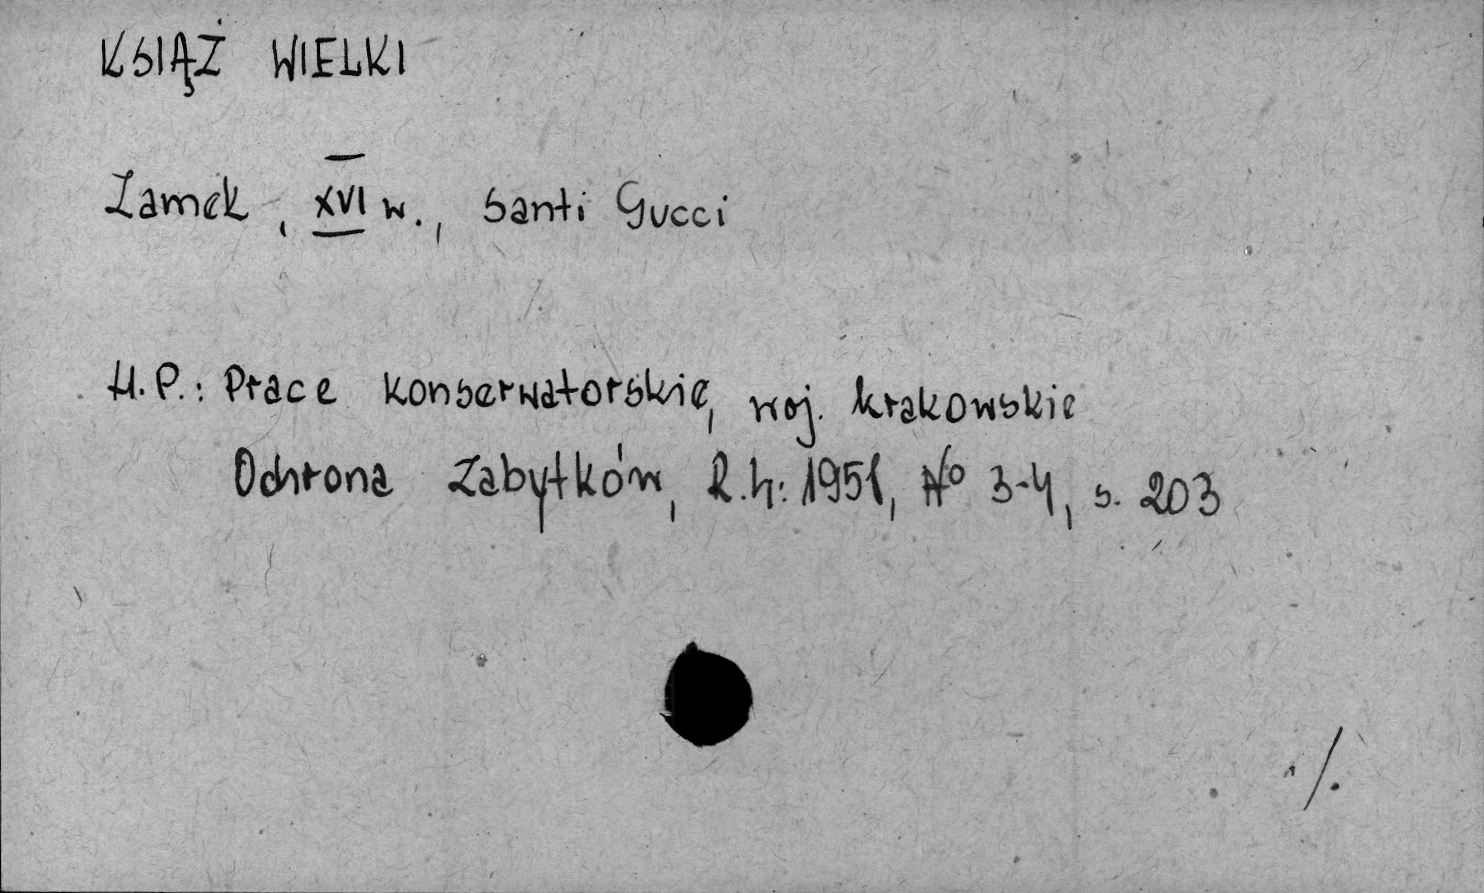 KSIĄŻ WIELKI
Zamek, XVI w., Santi Gucci
H.P.: Prace konserwatorskie, woj. krakowskie
Ochrona Zabytków, R.4: 1951, No 3-4, s. 203
./.